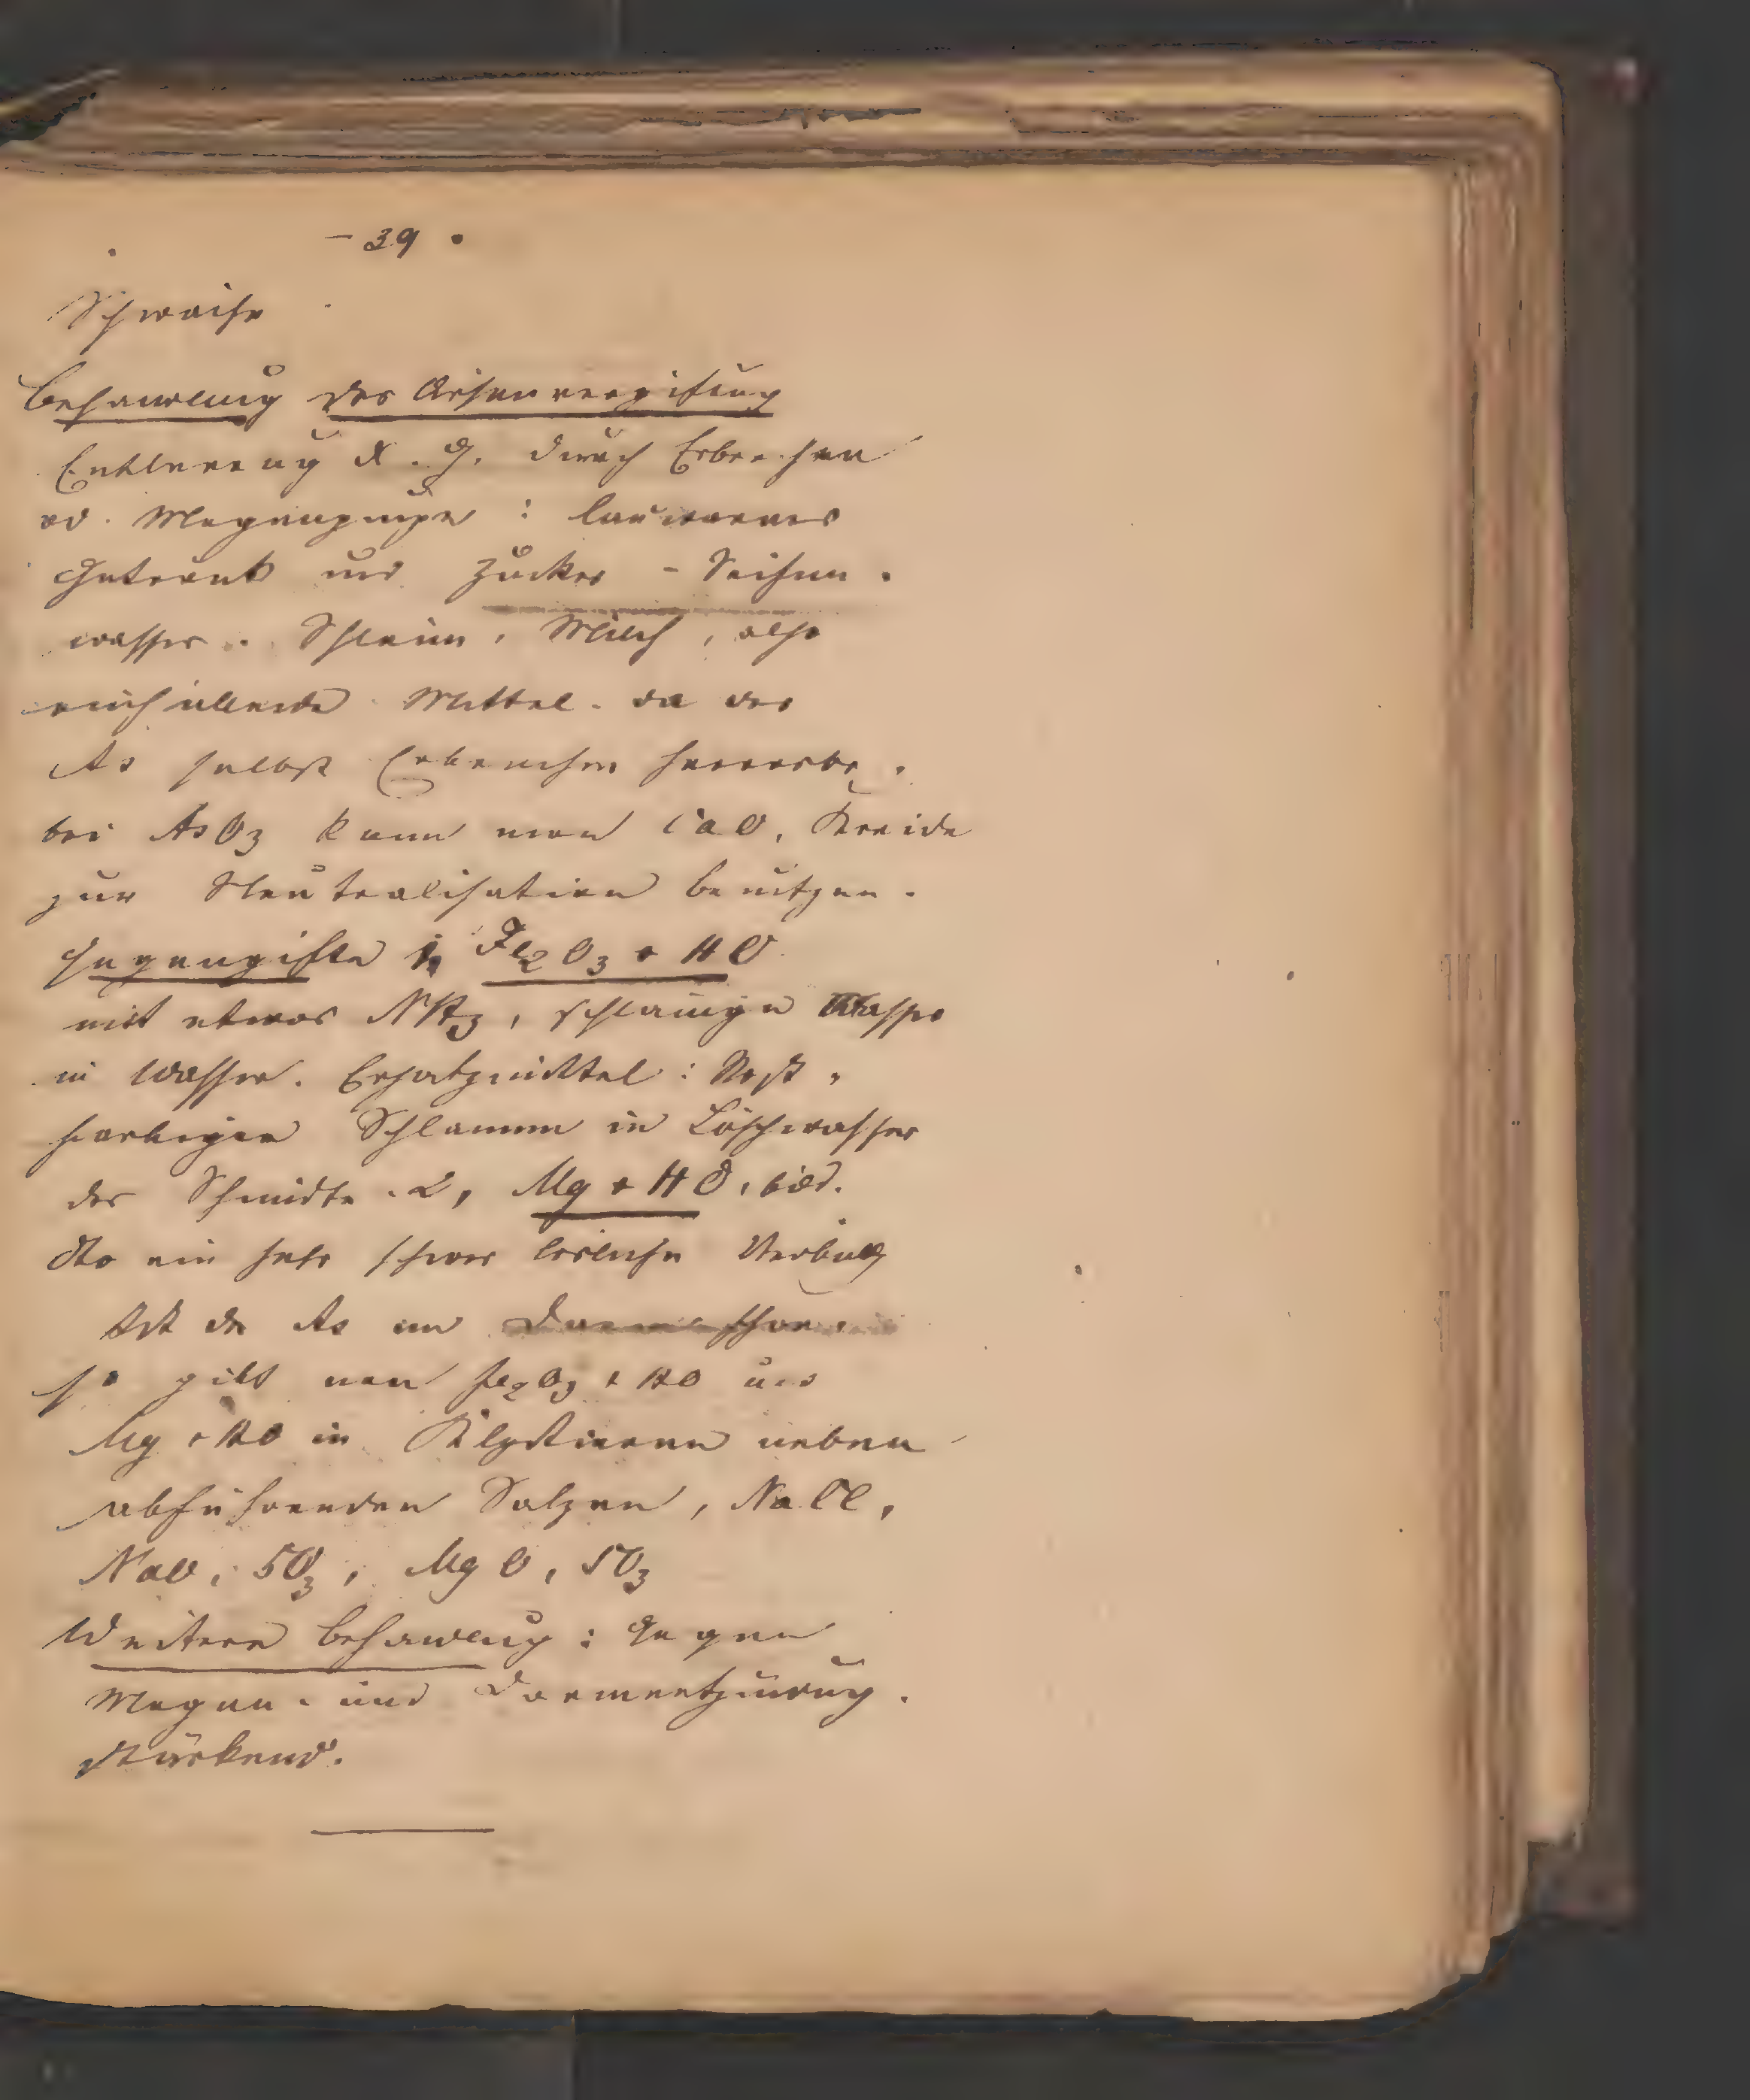 - 39 .
Schweiße
Behandlung der Arsenvergiftung
Entleerung d. G. durch Erbrechen
od. Magenpumpe : lauwarmes
Getränk mit Zucker - Seifen -
wasser . Schleim , Milch , also
einhüllende Mittel . da das
As selbst Erbrechen hervorbr.
bei AsO3 kann man CaO, Kreide
zur Neutralisation benützen .
Gegengifte 1, Fe2O3 + HO
mit etwas NH3 , schlammige Masse
in Wasser . Ersatzmittel : Rost -
farbigen Schlamm in Löschwasser
der Schmidte . 2, Mg + HO , bild.
ein sehr schwer lösliche Verbindg
Ist das As im Darme schon ,
so gibt man Fe2O3 + HO und
Mg + HO in Klystieren neben
abführenden Salzen , NaCl ,
NaO , SO3 , MgO , SO3
Weitere Behandlung : Gegen
Magen - und Darmentzündung .
stärkend .